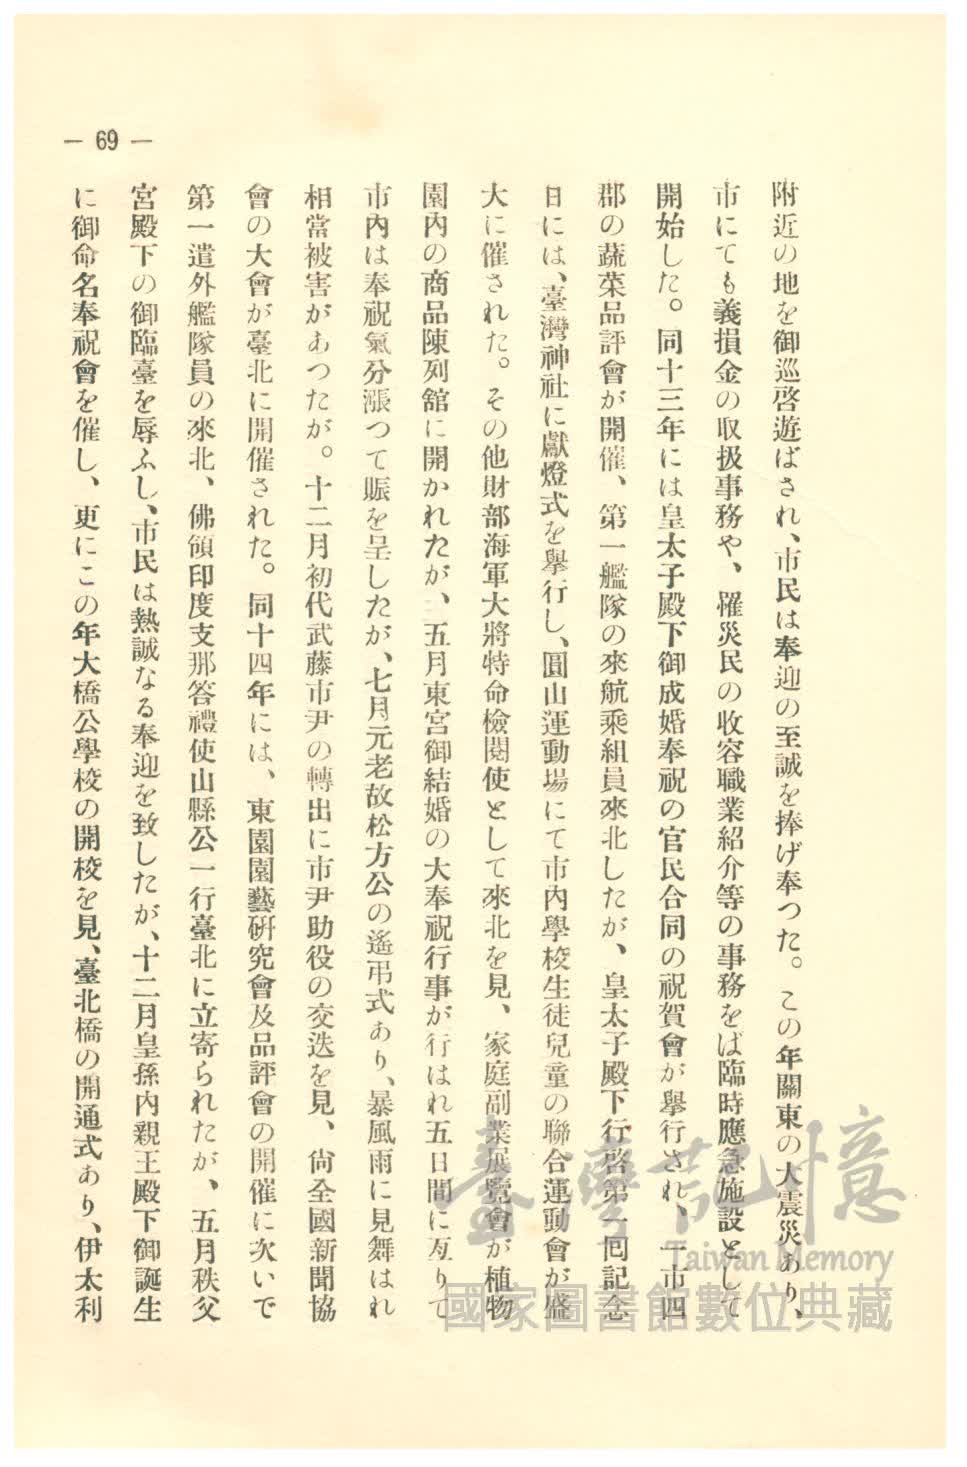 — 69 —
附近の地を御巡啓遊ばされ、市民は奉迎の至誠を捧げ奉つた。この年關東の大震災あり、
市にても義損金の取扱事務や、罹災民の收容職業紹介等の事務をば臨時應急施設として
開始した。同十三年には皇太子殿下御成婚奉祝の官民合同の祝賀會が擧行され、一市四
郡の蔬菜品評會が開催、第一艦隊の來航乘組員來北したが、皇太子殿下行啓第一囘記念
日には、臺灣神社に獻燈式を擧行し、圓山運動場にて市內學校生徒兒童の聯合運動會が盛
大に催された。その他財部海軍大將特命檢閱使として來北を見、家庭副業展覽會が植物
園內の商品陳列館に開かれたが、五月東宮御結婚の大奉祝行事が行はれ五日間に亙りて
市內は奉祝氣分漲つて賑を呈したが、七月元老故松方公の遙弔式あり、暴風雨に見舞はれ
相當被害があつたが。十二月初代武藤市尹の轉出に市尹助役の交迭を見、尙全國新聞協
會の大會が臺北に開催された。同十四年には、東園園藝硏究會及品評會の開催に次いで
第一遣外艦隊員の來北、佛領印度支那答禮使山縣公一行臺北に立寄られたが、五月秩父
宮殿下の御臨臺を辱ふし、市民は熱誠なる奉迎を致したが、十二月皇孫內親王殿下御誕生
に御命名奉祝會を催し、更にこの年大橋公學校の開校を見、臺北橋の開通式あり、伊太利
臺灣記憶
Taiwan Memory
國家圖書館數位典藏